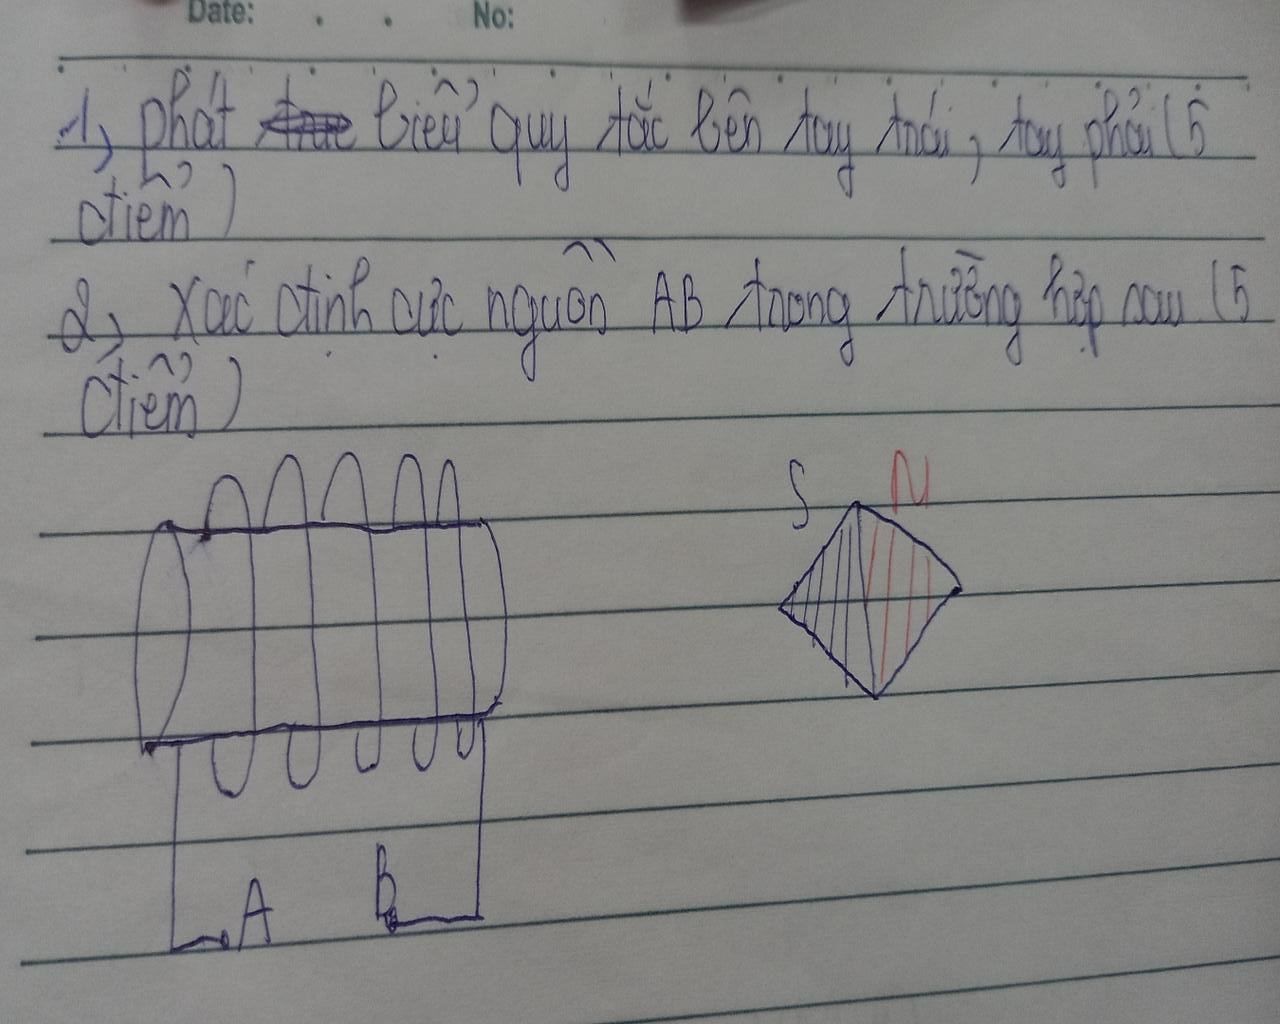 Date: . . No:
1, phát biểu quy tắc bên tay trái, tay phải (5
điểm)
2, Xác định cực nguồn AB trong trường hợp sau (5
điểm)
S N
A B